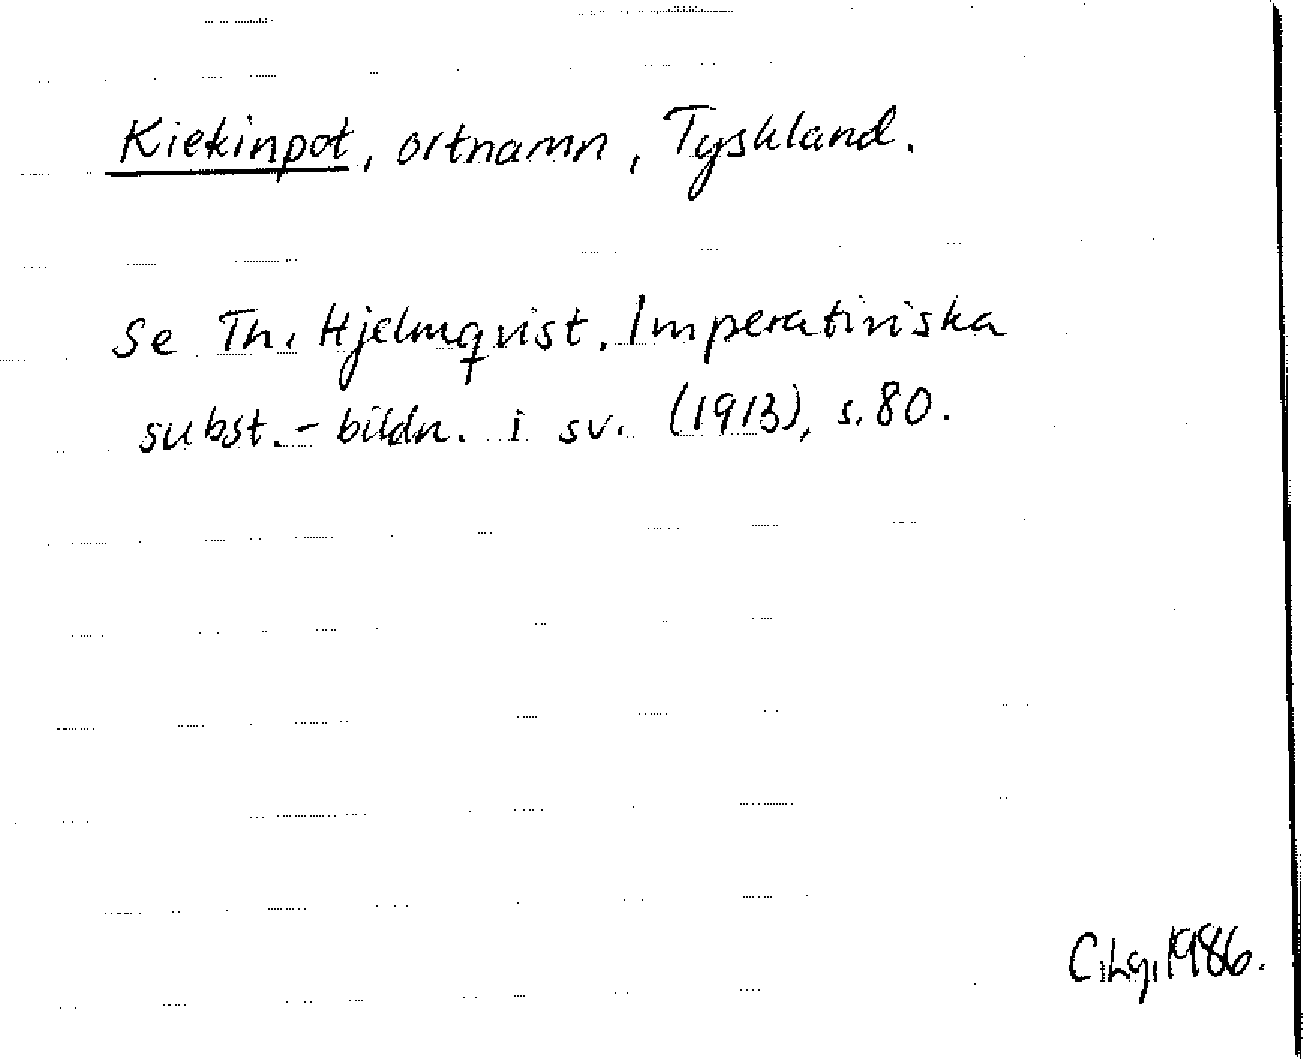 Kiekinpot, ortnamn, Tyskland.
Se Th. Hjelmqvist. Imperativiska
subst.-bildn. i sv. (1913), s. 80.
C.Lg. 1986.